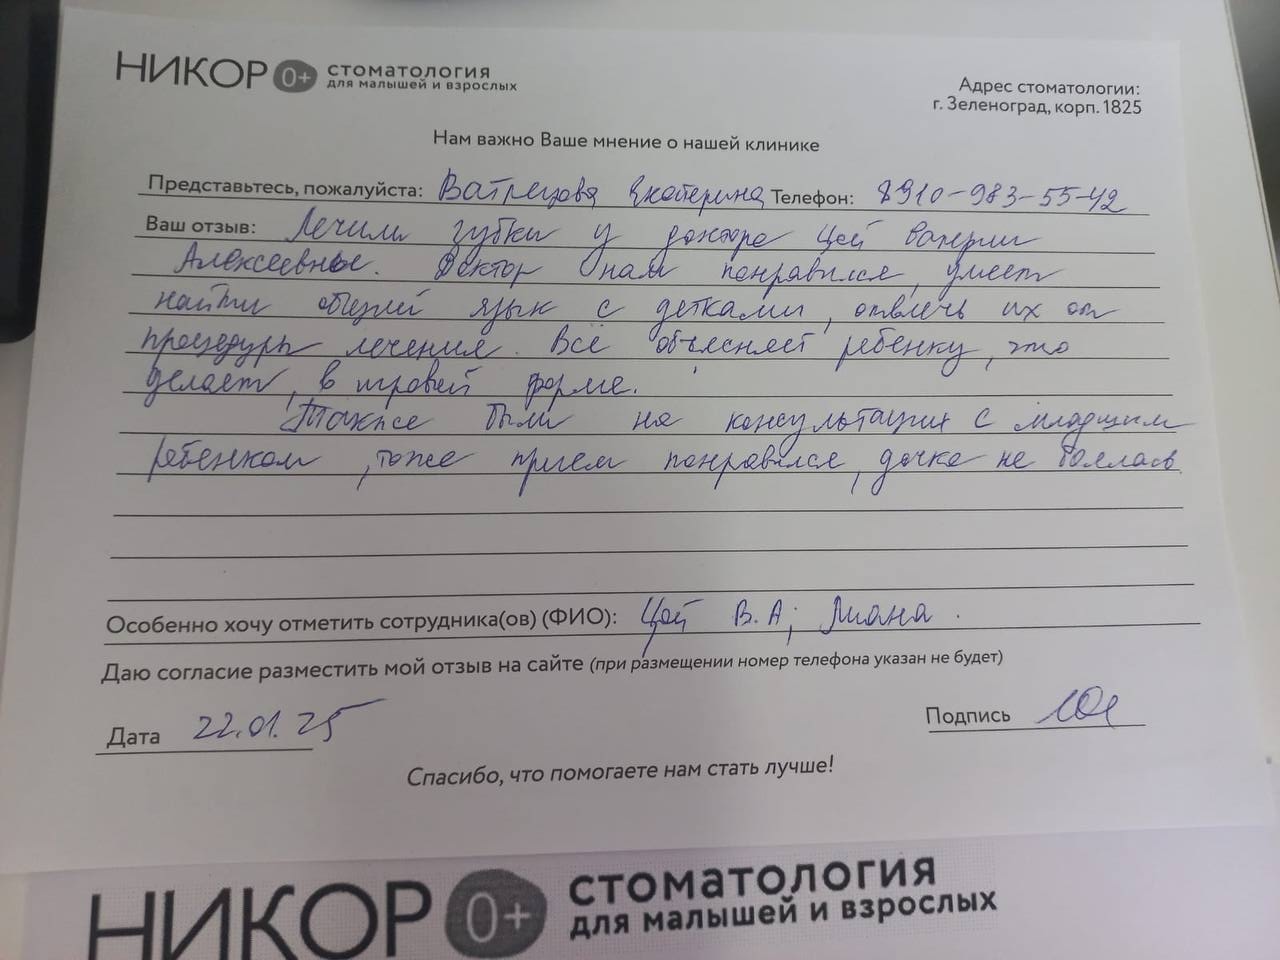 НИКОР 0+ стоматология
для малышей и взрослых
Адрес стоматологии:
г. Зеленоград, корп. 1825
Нам важно Ваше мнение о нашей клинике
Представьтесь, пожалуйста: Екатерина Телефон: 8910-983-55-42
Ваш отзыв: Лечили зубки у доктора Цой Валерии
Алексеевны. Доктор нам понравился, умеет
найти общий язык с детками, отвлечь их от
процедуры лечения. Всё объясняет ребенку, что
делает, в игровой форме.
Также были на консультации с младшим
ребенком, тоже прием понравился, дочка не боялась
Особенно хочу отметить сотрудника(ов) (ФИО): Цой В.А; Лиана.
Даю согласие разместить мой отзыв на сайте (при размещении номер телефона указан не будет)
Дата 22.01.25
Подпись
Спасибо, что помогаете нам стать лучше!
НИКОР 0+ стоматология
для малышей и взрослых